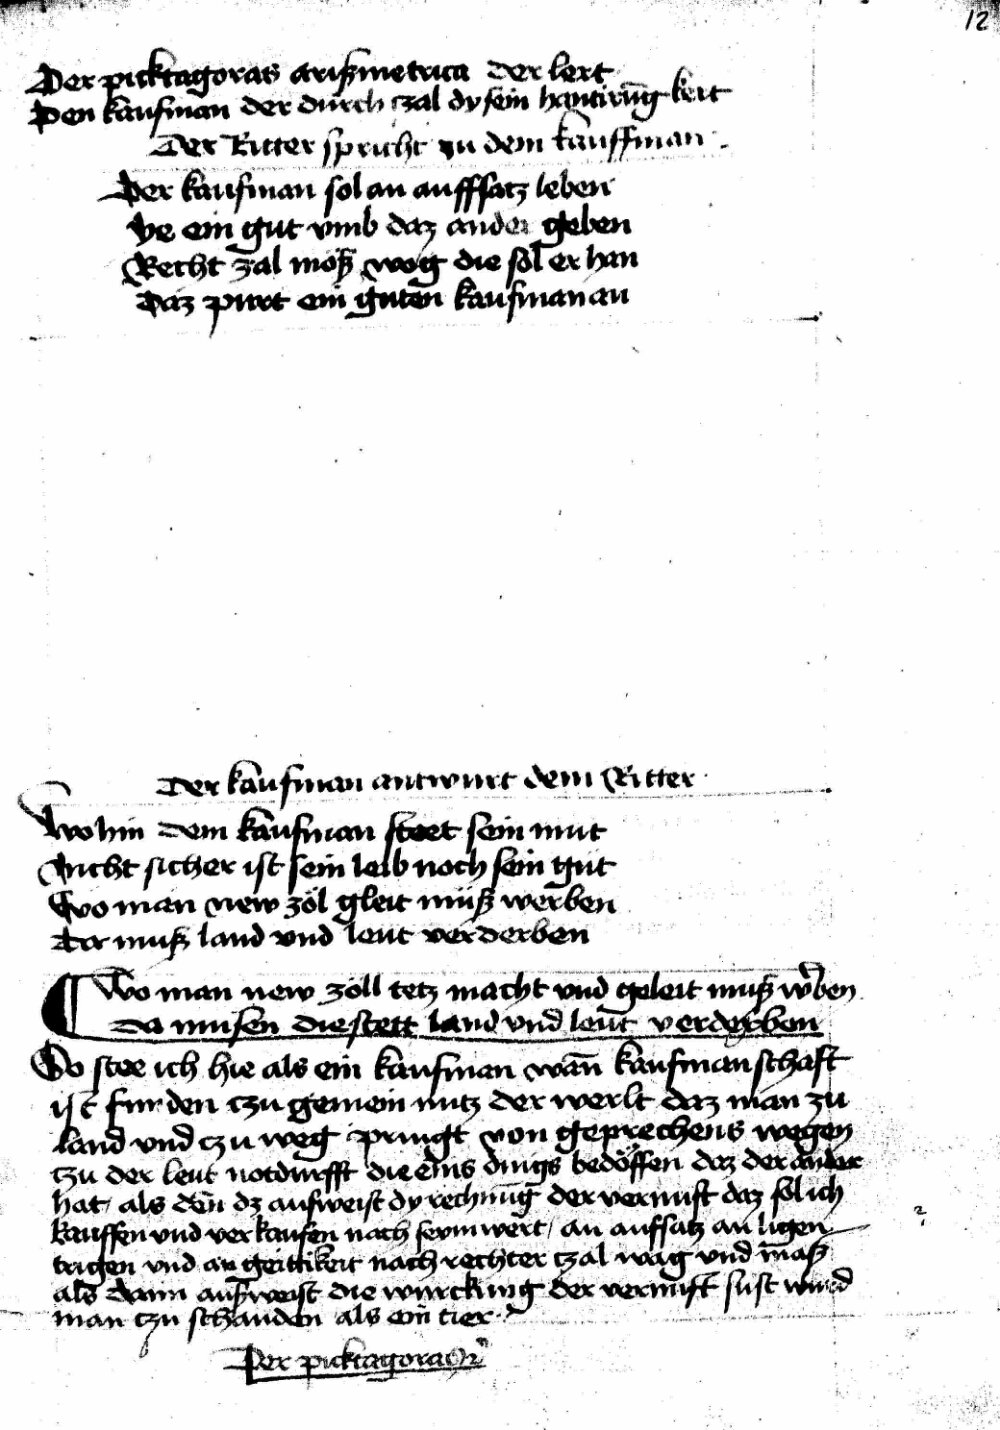 12
Der picktagoras arißmetrica der lert
Den kaufman der durch czal dy sein hantirūgkeit
Der Ritter spricht zu dem kauffman
Der kaufman sol an aufffsatz leben
Ye ein gut vmb daz ander geben
Recht zal moß wog die sol er han
Daz purt ein guten kaufman an
Der kaufman antwurt dem Ritter
Wo hin dem kaufman steet sein mut
Nicht sicher ist sein leib noch sein gut
Wo man new zöl gleit müß werben
Da muß land vnd leut verderben
Wo man new zöll tetz macht vnd geleit muß w̄ben
Da musen die stett land vnd leut verderben
So stee ich hie als ein kaufman wān kaufmanschaft
ist fur den czu gemein nutz der werlt daz man zu
land vnd czu weg pringt von geprechens wegen
czu der leut notdurfft die eins dings bedöffen daz der ander
hat / als dēn dz aufweist dy rechnūg der vernuft daz sol ich
kauffen vnd verkaufen nach seym wert / an auffsatz an ligen
trigen vnd an geittikeit nach rechter czal wag vnd maß
als dann außweist die wurckung der vernuft sust wurd
man czu schanden als ein tier
Der picktagoras